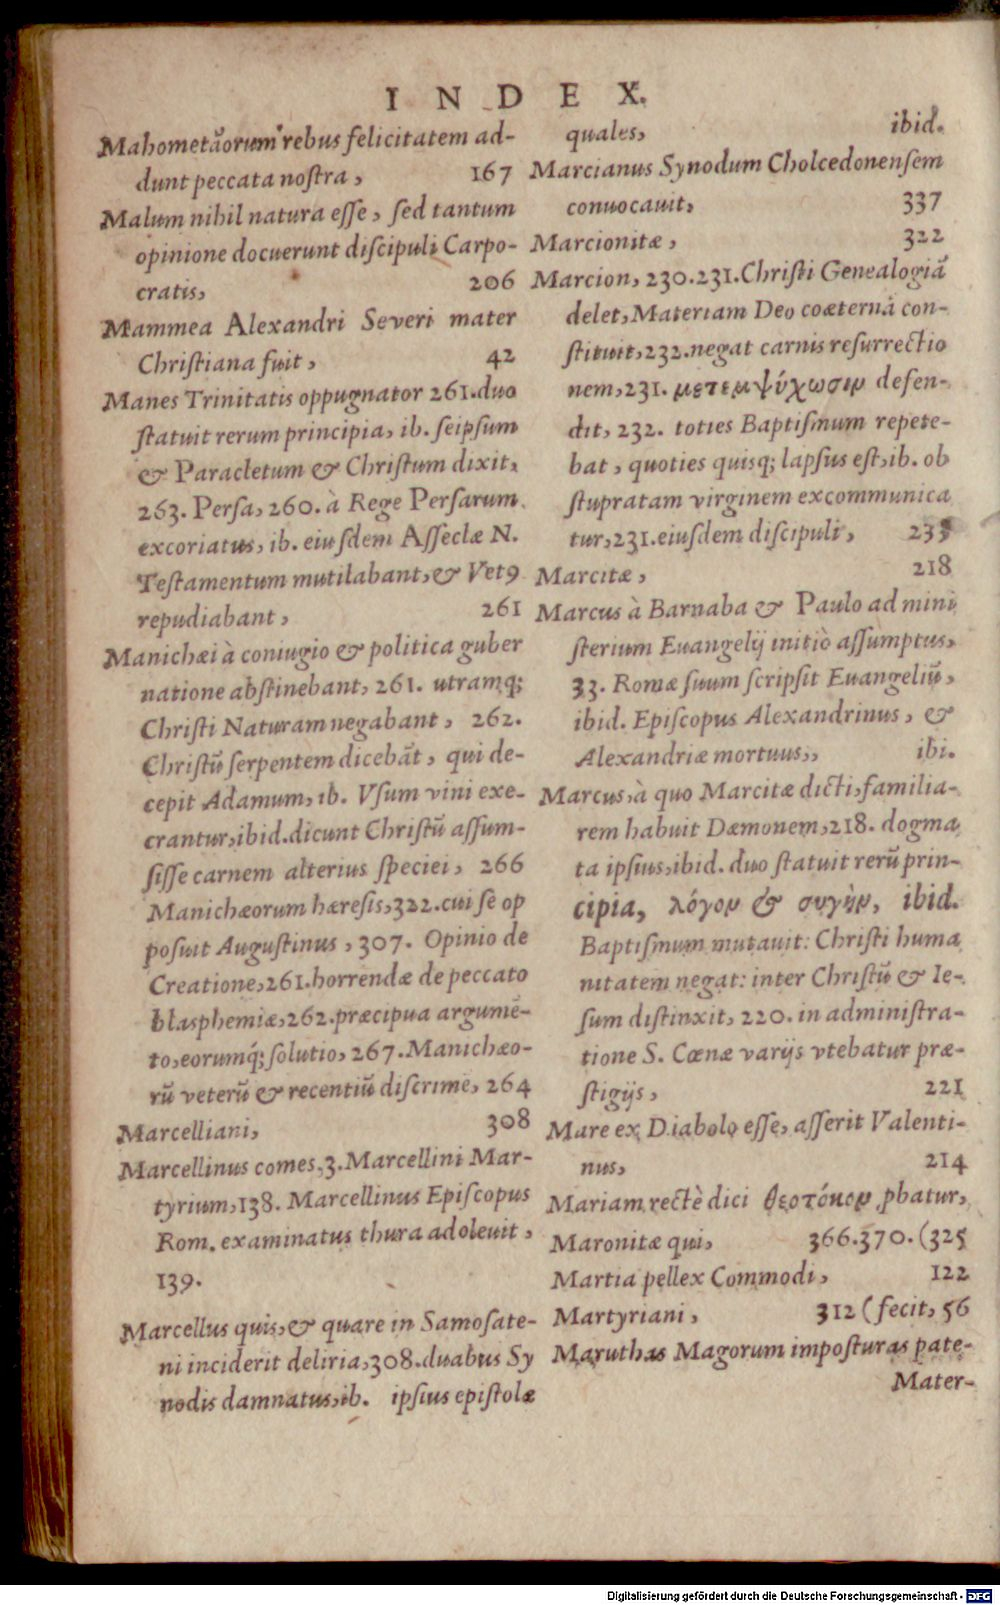 INDEX.
Mahometãorum rebus felicitatem ad-
dunt peccata noſtra, 167
Malum nihil natura eſſe, ſed tantum
opinione docuerunt diſcipuli Carpo-
cratis, 206
Mammea Alexandri Severi mater
Chriſtiana fuit, 42
Manes Trinitatis oppugnator 261.duo
ſtatuit rerum principia, ib. ſeipſum
& Paracletum & Chriſtum dixit,
263. Perſa, 260. à Rege Perſarum
excoriatus, ib. eiuſdem Aſſeclæ N.
Teſtamentum mutilabant, & Vetꝰ
repudiabant, 261
Manichæi à coniugio & politica guber
natione abſtinebant, 261. utramq;
Chriſti Naturam negabant, 262.
Chriſtũ ſerpentem dicebãt, qui de-
cepit Adamum, ib. Vſum vini exe-
crantur, ibid. dicunt Chriſtũ aſſum-
ſiſſe carnem alterius ſpeciei, 266
Manichæorum hæreſis, 322. cui ſe op
poſuit Auguſtinus, 307. Opinio de
Creatione, 261. horrendæ de peccato
blasphemiæ, 262. præcipua argumẽ-
to, eorumq́; ſolutio, 267. Manichæo-
rũ veterũ & recentiũ diſcrimẽ, 264
Marcelliani, 308
Marcellinus comes, 3. Marcellini Mar-
tyrium, 138. Marcellinus Epiſcopus
Rom. examinatus thura adoleuit,
139.
Marcellus quis, & quare in Samoſate-
ni inciderit deliria, 308. duabus Sy
nodis damnatus, ib. ipſius epiſtolæ
quales, ibid.
Marcianus Synodum Cholcedonenſem
conuocauit, 337
Marcionitæ, 322
Marcion, 230.231. Chriſti Genealogiã
delet, Materiam Deo coæternã con-
ſtituit, 232. negat carnis reſurrectio
nem, 231. μετεμψύχωσιν defen-
dit, 232. toties Baptiſmum repete-
bat, quoties quisq; lapſus eſt, ib. ob
ſtupratam virginem excommunica
tur, 231. eiusdem diſcipuli, 235
Marcitæ, 218
Marcus à Barnaba & Paulo ad mini
ſterium Euangelij initiò aſſumptus,
33. Romæ ſuum ſcripſit Euangeliũ,
ibid. Epiſcopus Alexandrinus, &
Alexandriæ mortuus,, ibi.
Marcus, à quo Marcitæ dicti, familia-
rem habuit Dæmonem, 218. dogma
ta ipſius, ibid. duo ſtatuit rerũ prin-
cipia, λόγον & συγὴν, ibid.
Baptiſmum mutauit: Chriſti huma
nitatem negat: inter Chriſtũ & Ie-
ſum diſtinxit, 220. in adminiſtra-
tione S. Cœnæ varijs vtebatur præ-
ſtigijs, 221
Mare ex Diabolo eſſe, aſſerit Valenti-
nus, 214
Mariam rectè dici θεοτόκον ꝓbatur,
Maronitæ qui, 366.370. (325
Martia pellex Commodi, 122
Martyriani, 312 (fecit, 56
Maruthas Magorum impoſturas pate-
Mater-
Digitalisierung gefördert durch die Deutsche Forschungsgemeinschaft - DFG